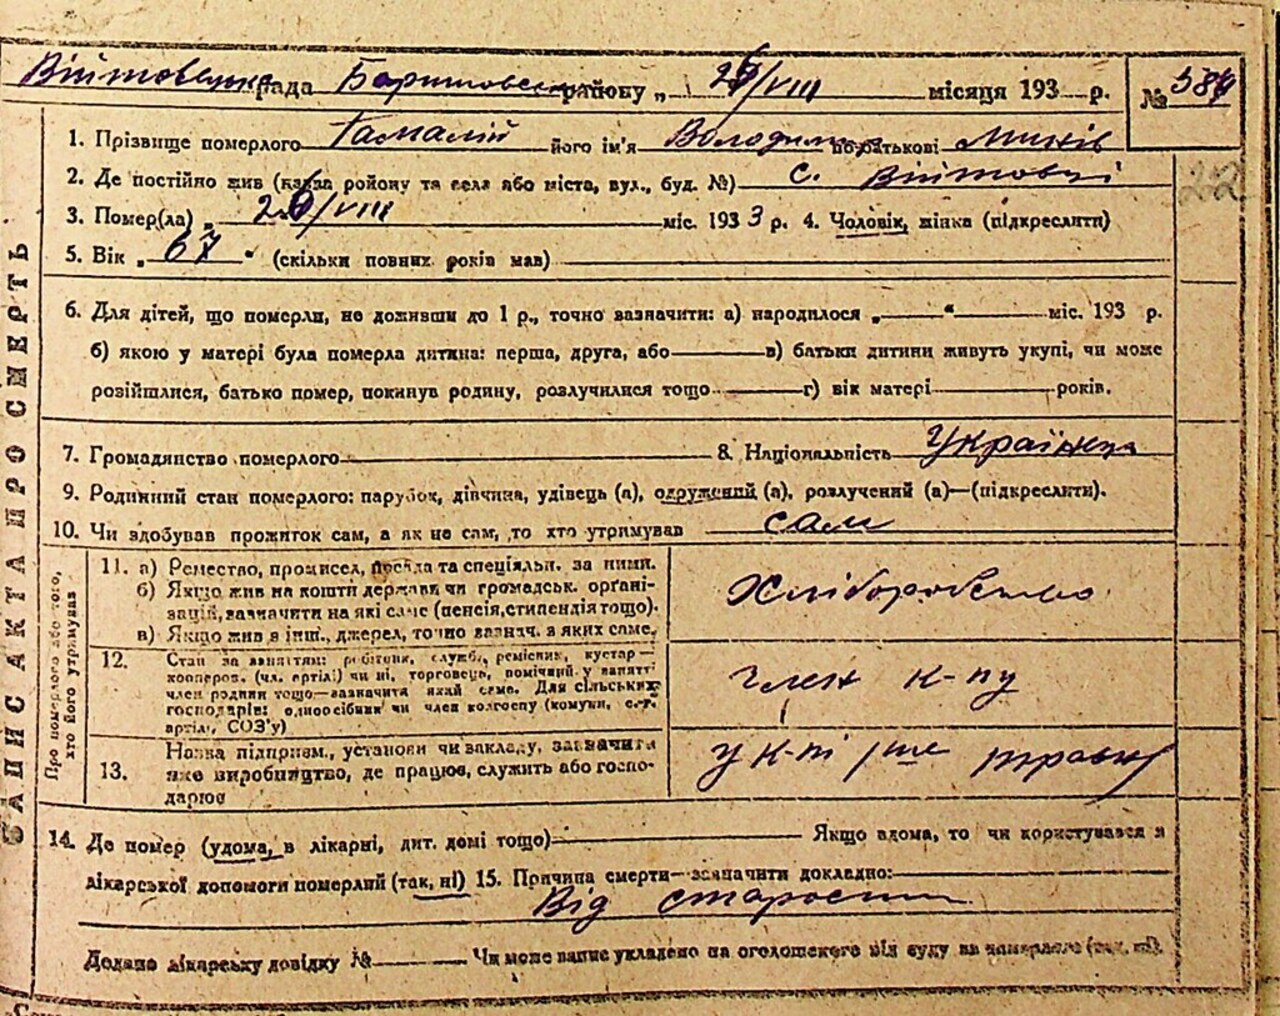 Війтовецька рада Баришовського району „ 26/VIII місяця 193 р. № 384
1. Прізвище померлого Гамалій його ім'я Володимир по батькові Минів
2. Де постійно жив (назва району та села або міста, вул., буд. №) с. Війтовці
22
3. Помер(ла) „ 26/VIII міс. 1933 р. 4. Чоловік, жінка (підкреслити)
5. Вік „ 67 " (скільки повних років мав)
6. Для дітей, що померли, не доживши до 1 р., точно зазначити: а) народилося „ " міс. 193 р.
б) якою у матері була померла дитина: перша, друга, або в) батьки дитини живуть укупі, чи може
розійшлися, батько помер, покинув родину, розлучилися тощо г) вік матері років.
7. Громадянство померлого 8. Національність Українец
9. Родинний стан померлого: парубок, дівчина, удівець (а), одружений (а), розлучений (а)—(підкреслити).
10. Чи здобував прожиток сам, а як не сам, то хто утримував сам
ЗАПИС АКТА ПРО СМЕРТЬ
Про померлого або того,
хто його утримував
11. а) Ремество, промисел, посада та спеціяльн. за ними.
б) Якщо жив на кошти держави чи громадськ. орґані-
зацій, зазначити на які саме (пенсія, стипендія тощо).
в) Якщо жив з інш., джерел, точно зазнач. з яких саме.
Хліборобство
12. Стан за заняттям: робітник, служб., ремісник, кустар—
кооперов. (чл. артілі) чи ні, торговець, помічний у занятті
член родини тощо—зазначити який саме. Для сільських
господарів: одноосібник чи член колгоспу (комуни, с.-г.
артілі, СОЗ'у)
член к-пу
13. Назва підприєм., установи чи закладу, зазначити
яке виробництво, де працює, служить або госпо-
дарює
у к-пі 1ше травня
14. Де помер (удома, в лікарні, дит. домі тощо) Якщо вдома, то чи користувався з
лікарської допомоги померлий (так, ні) 15. Причина смерти—зазначити докладно:
Від старости
Додано лікарську довідку № Чи може запис укладено на оголошеного від суду за померлого (так, ні).